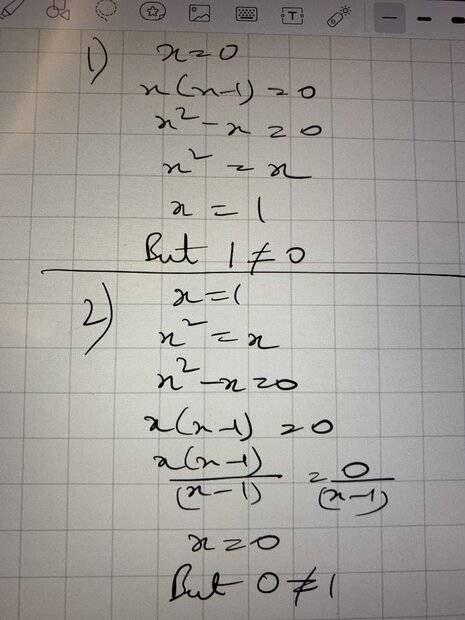 1) x=0
x(x-1)=0
x²-x=0
x²=x
x=1
But 1≠0
2) x=1
x²=x
x²-x=0
x(x-1)=0
x(x-1)/(x-1)=0/(x-1)
x=0
But 0≠1